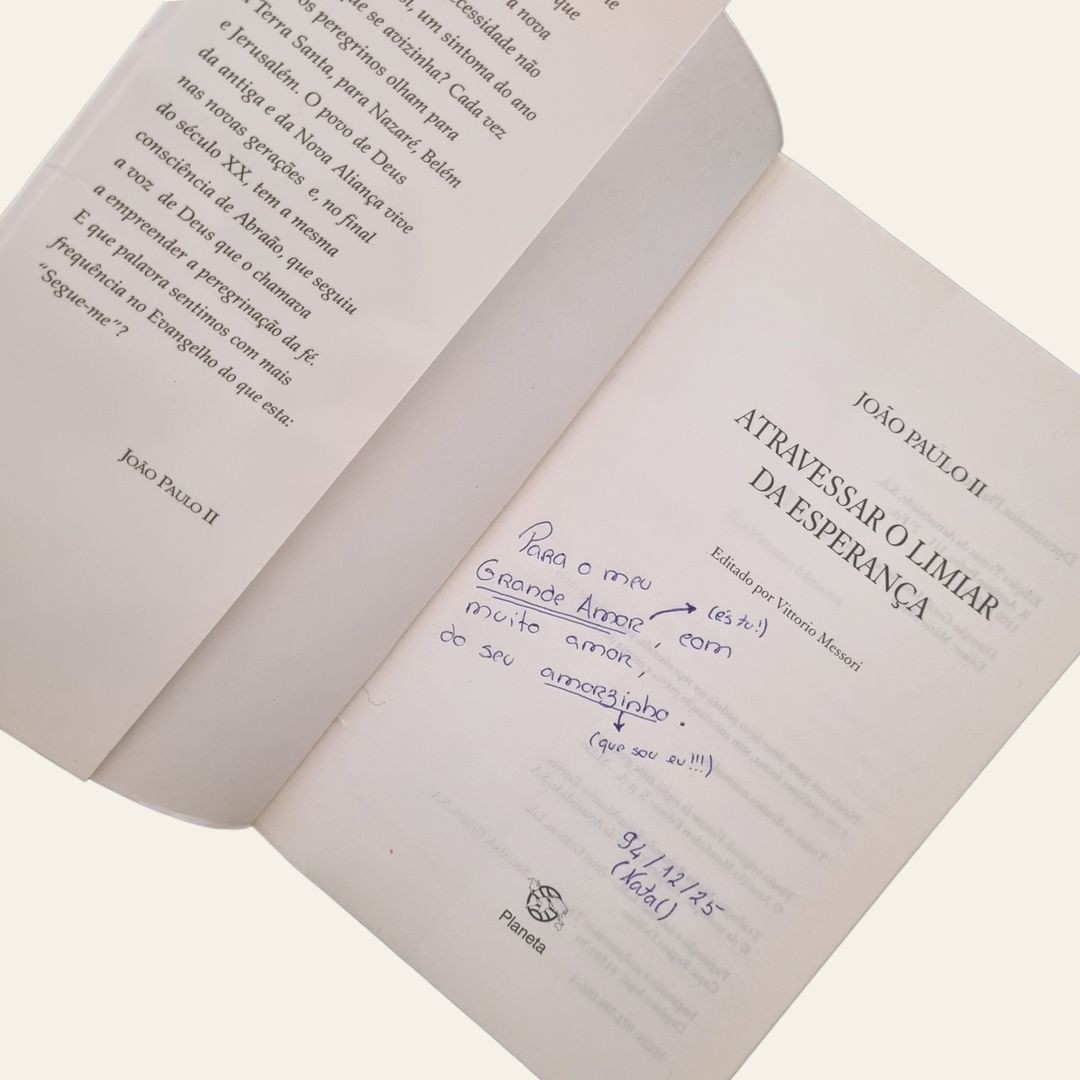 que
a nova
cessidade não
, um sintoma do ano
que se avizinha? Cada vez
os peregrinos olham para
Terra Santa, para Nazaré, Belém
e Jerusalém. O povo de Deus
da antiga e da Nova Aliança vive
nas novas gerações e, no final
do século XX, tem a mesma
consciência de Abraão, que seguiu
a voz de Deus que o chamava
a empreender a peregrinação da fé.
E que palavra sentimos com mais
frequência no Evangelho do que esta:
“Segue-me”?
JOÃO PAULO II
JOÃO PAULO II
ATRAVESSAR O LIMIAR
DA ESPERANÇA
Editado por Vittorio Messori
Para o meu
Grande Amor, com
(és tu!)
muito amor,
do seu amorzinho.
(que sou eu!!!)
94/12/25
(Natal)
Planeta